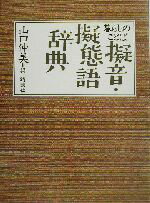 暮らしの
ことば
擬音・
擬態語
辞典
山口仲美